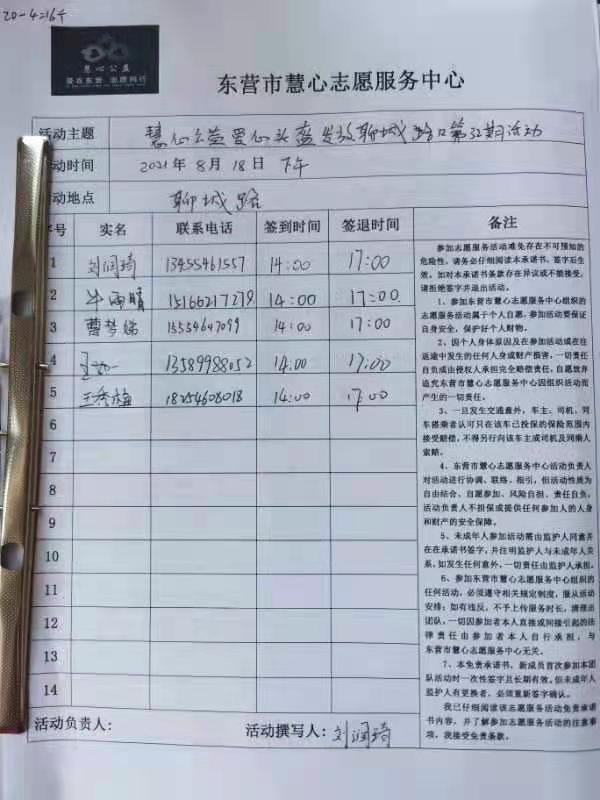 20-4=16个
慧心公益
爱在东营 志愿同行
东营市慧心志愿服务中心
活动主题 慧心公益爱心头盔发放聊城路口第32期活动
动时间 2021年8月18日 下午
动地点 聊城路
序号 实名 联系电话 签到时间 签退时间 备注
1 刘润琦 13455461557 14:00 17:00
2 牛雨晴 15166217279 14:00 17:00
3 曹梦瑶 15554647099 14:00 17:00
4 13589988052 14:00 17:00
5 王秀梅 18254608018 14:00 17:00
6
7
8
9
10
11
12
13
14
参加志愿服务活动难免存在不可预知的
危险性，请务必仔细阅读本承诺书，签字后生
效。如对本承诺书条款存在异议或不能接受，
请拒绝签字并退出活动。
1、参加东营市慧心志愿服务中心组织的
志愿活动属于个人自愿。参加活动要保证
自身安全，保护好个人财物。
2、因个人身体原因及在参加活动或在往
返途中发生的任何人身或财产损害，一切责任
自负或由侵权人承担完全赔偿责任，自愿放弃
追究东营市慧心志愿服务中心因组织活动而
产生的一切责任。
3、一旦发生交通意外，车主、司机、同
车搭乘者认可只在该车已投保的保险范围内
接受赔偿，不得另行向该车主或司机及同乘人
索赔。
4、东营市慧心志愿服务中心活动负责人
对活动进行协调、联络、指引，但活动性质为
自由结合、自愿参加、风险自担、责任自负，
活动负责人不担保或提供任何参加人的人身
和财产的安全保障。
5、未成年人参加活动需由监护人同意并
在在承诺书签字，并注明监护人与未成年人关
系，如发生任何意外，一切责任由监护人承担。
6、参加东营市慧心志愿服务中心组织的
任何活动，必须遵守相关规定制度，服从活动
安排；如有违反，不予上传服务时长，清理出
团队，一切因参加者本人直接或间接引起的法
律责任由参加者本人自行承担，与
东营市慧心志愿服务中心无关。
7、本免责承诺书，新成员首次参加本团
队活动时一次性签字且长期有效。但未成年人
监护人有更换者，必须重新签字确认。
我已仔细阅读该志愿服务活动免责承诺
书内容，并了解参加志愿服务活动的注意事
项，我接受免责条款。
活动负责人： 活动撰写人：刘润琦